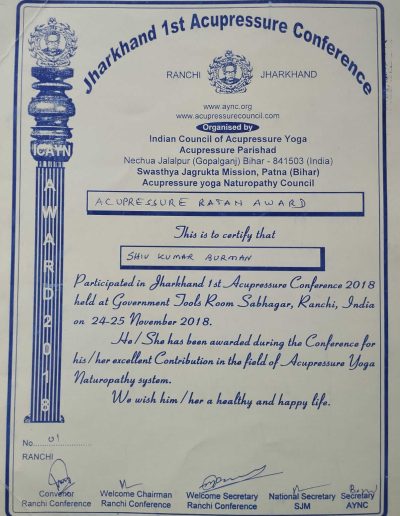 Jharkhand 1st Acupressure Conference
RANCHI JHARKHAND
www.aync.org
www.acupressurecouncil.com
Organised by
Indian Council of Acupressure Yoga
Acupressure Parishad
Nechua Jalalpur (Gopalganj) Bihar - 841503 (India)
Swasthya Jagrukta Mission, Patna (Bihar)
Acupressure yoga Naturopathy Council
ICAYN
AWARD 2018
ACUPRESSURE RATAN AWARD
This is to certify that
SHIV KUMAR BURMAN
Participated in Jharkhand 1st Acupressure Conference 2018
held at Government Tools Room Sabhagar, Ranchi, India
on 24-25 November 2018.
He/She has been awarded during the Conference for
his/her excellent Contribution in the field of Acupressure Yoga
Naturopathy system.
We wish him/her a healthy and happy life.
No. 01
RANCHI
Convenor
Ranchi Conference
Welcome Chairman
Ranchi Conference
Welcome Secretary
Ranchi Conference
National Secretary
SJM
Secretary
AYNC